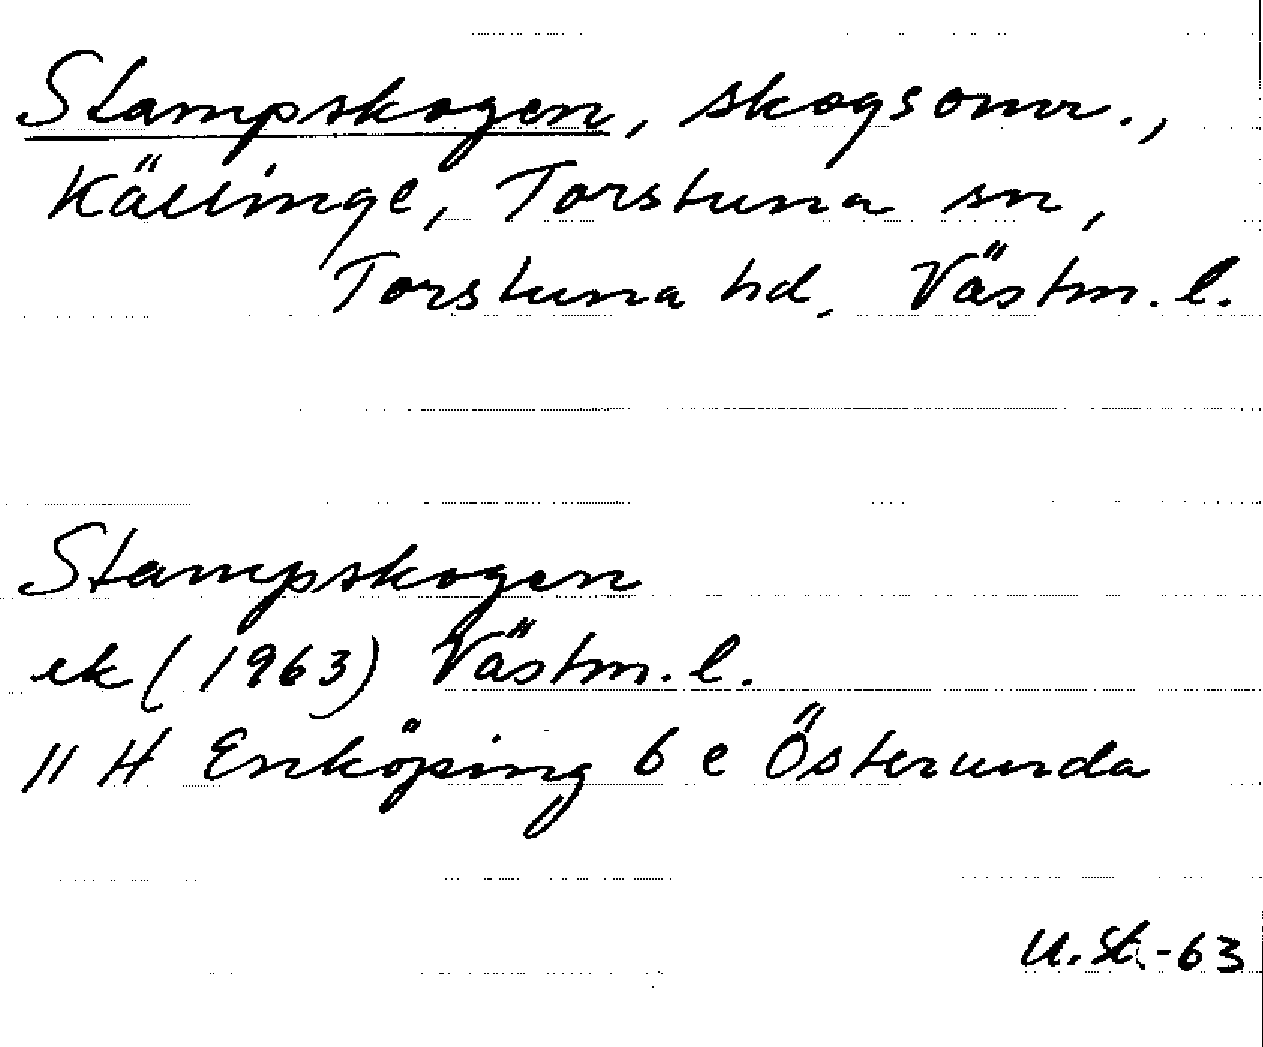 Stampskogen, skogsomr.,
Källinge, Torstuna sn,
Torstuna hd, Västm. l.
Stampskogen
ek (1963) Västm. l.
11 H Enköping 6 e Österunda
U. St. -63